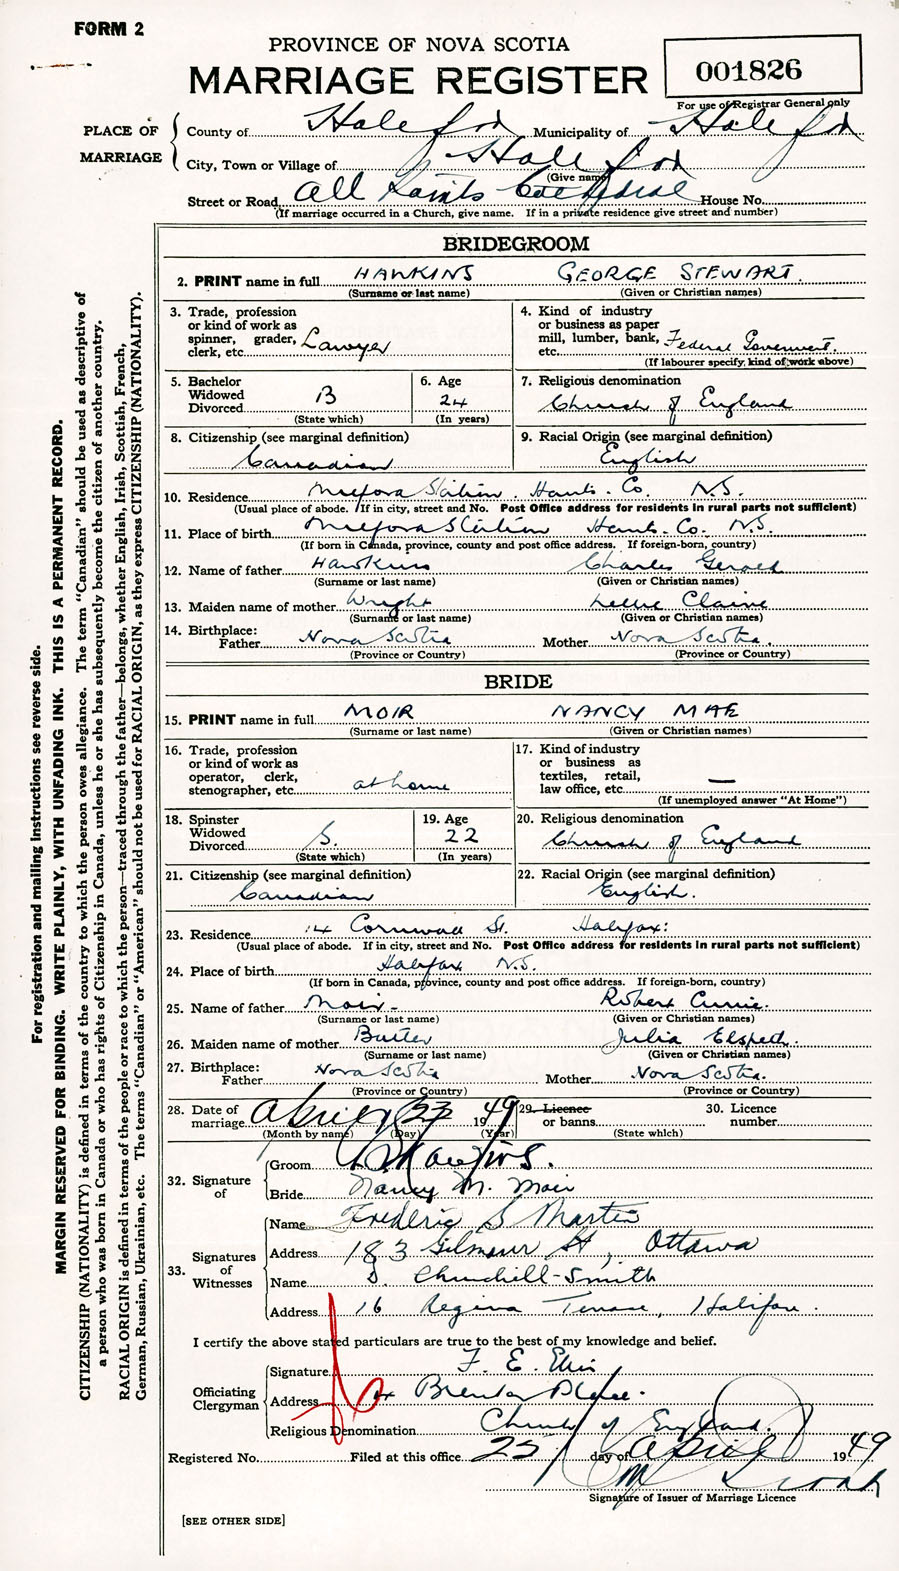 FORM 2
PROVINCE OF NOVA SCOTIA
MARRIAGE REGISTER
001826
For use of Registrar General only
PLACE OF MARRIAGE
County of Halifax Municipality of Halifax
City, Town or Village of Halifax
(Give name)
Street or Road All Saints Cathedral House No.
(If marriage occurred in a Church, give name. If in a private residence give street and number)
BRIDEGROOM
2. PRINT name in full HAWKINS GEORGE STEWART.
(Surname or last name) (Given or Christian names)
3. Trade, profession or kind of work as spinner, grader, clerk, etc. Lawyer
4. Kind of industry or business as paper mill, lumber, bank, etc. Federal Government.
(If labourer specify, kind of work above)
5. Bachelor Widowed Divorced B
(State which)
6. Age 24
(In years)
7. Religious denomination
Church of England
8. Citizenship (see marginal definition)
Canadian
9. Racial Origin (see marginal definition)
English
10. Residence Milford Station. Hants. Co. N.S.
(Usual place of abode. If in city, street and No. Post Office address for residents in rural parts not sufficient)
11. Place of birth Milford Station Hants. Co. N.S.
(If born in Canada, province, county and post office address. If foreign-born, country)
12. Name of father Hawkins Charles Gerald
(Surname or last name) (Given or Christian names)
13. Maiden name of mother Wright Claire
(Surname or last name) (Given or Christian names)
14. Birthplace: Father Nova Scotia Mother Nova Scotia.
(Province or Country) (Province or Country)
BRIDE
15. PRINT name in full MOIR NANCY MAE
(Surname or last name) (Given or Christian names)
16. Trade, profession or kind of work as operator, clerk, stenographer, etc. at home
17. Kind of industry or business as textiles, retail, law office, etc. —
(If unemployed answer "At Home")
18. Spinster Widowed Divorced S.
(State which)
19. Age 22
(In years)
20. Religious denomination
Church of England
21. Citizenship (see marginal definition)
Canadian
22. Racial Origin (see marginal definition)
English.
23. Residence 14 Cornwall St. Halifax.
(Usual place of abode. If in city, street and No. Post Office address for residents in rural parts not sufficient)
24. Place of birth Halifax N.S.
(If born in Canada, province, county and post office address. If foreign-born, country)
25. Name of father Moir - Robert Currie.
(Surname or last name) (Given or Christian names)
26. Maiden name of mother Butler Julia Elspeth.
(Surname or last name) (Given or Christian names)
27. Birthplace: Father Nova Scotia Mother Nova Scotia.
(Province or Country) (Province or Country)
28. Date of marriage April 23 1949 29. Licence or banns 30. Licence number
(Month by name) (Day) (Year) (State which)
32. Signature of
Groom G. S. Hawkins.
Bride Nancy M. Moir
33. Signatures of Witnesses
Name Frederic S Martin
Address 183 Gilmour St, Ottawa
Name D. Churchill-Smith
Address 16 Regina Terrace, Halifax.
I certify the above stated particulars are true to the best of my knowledge and belief.
Officiating Clergyman
Signature F. E.
Address Brenton Place.
Religious Denomination Church of England.
Registered No. Filed at this office 25 day of April 1949
Signature of Issuer of Marriage Licence
[SEE OTHER SIDE]
For registration and mailing instructions see reverse side.
MARGIN RESERVED FOR BINDING. WRITE PLAINLY, WITH UNFADING INK. THIS IS A PERMANENT RECORD.
CITIZENSHIP (NATIONALITY) is defined in terms of the country to which the person owes allegiance. The term "Canadian" should be used as descriptive of
a person who was born in Canada or who has rights of Citizenship in Canada, unless he or she has subsequently become the citizen of another country.
RACIAL ORIGIN is defined in terms of the people or race to which the person—traced through the father—belongs, whether English, Irish, Scottish, French,
German, Russian, Ukrainian, etc. The terms "Canadian" or "American" should not be used for RACIAL ORIGIN, as they express CITIZENSHIP (NATIONALITY).